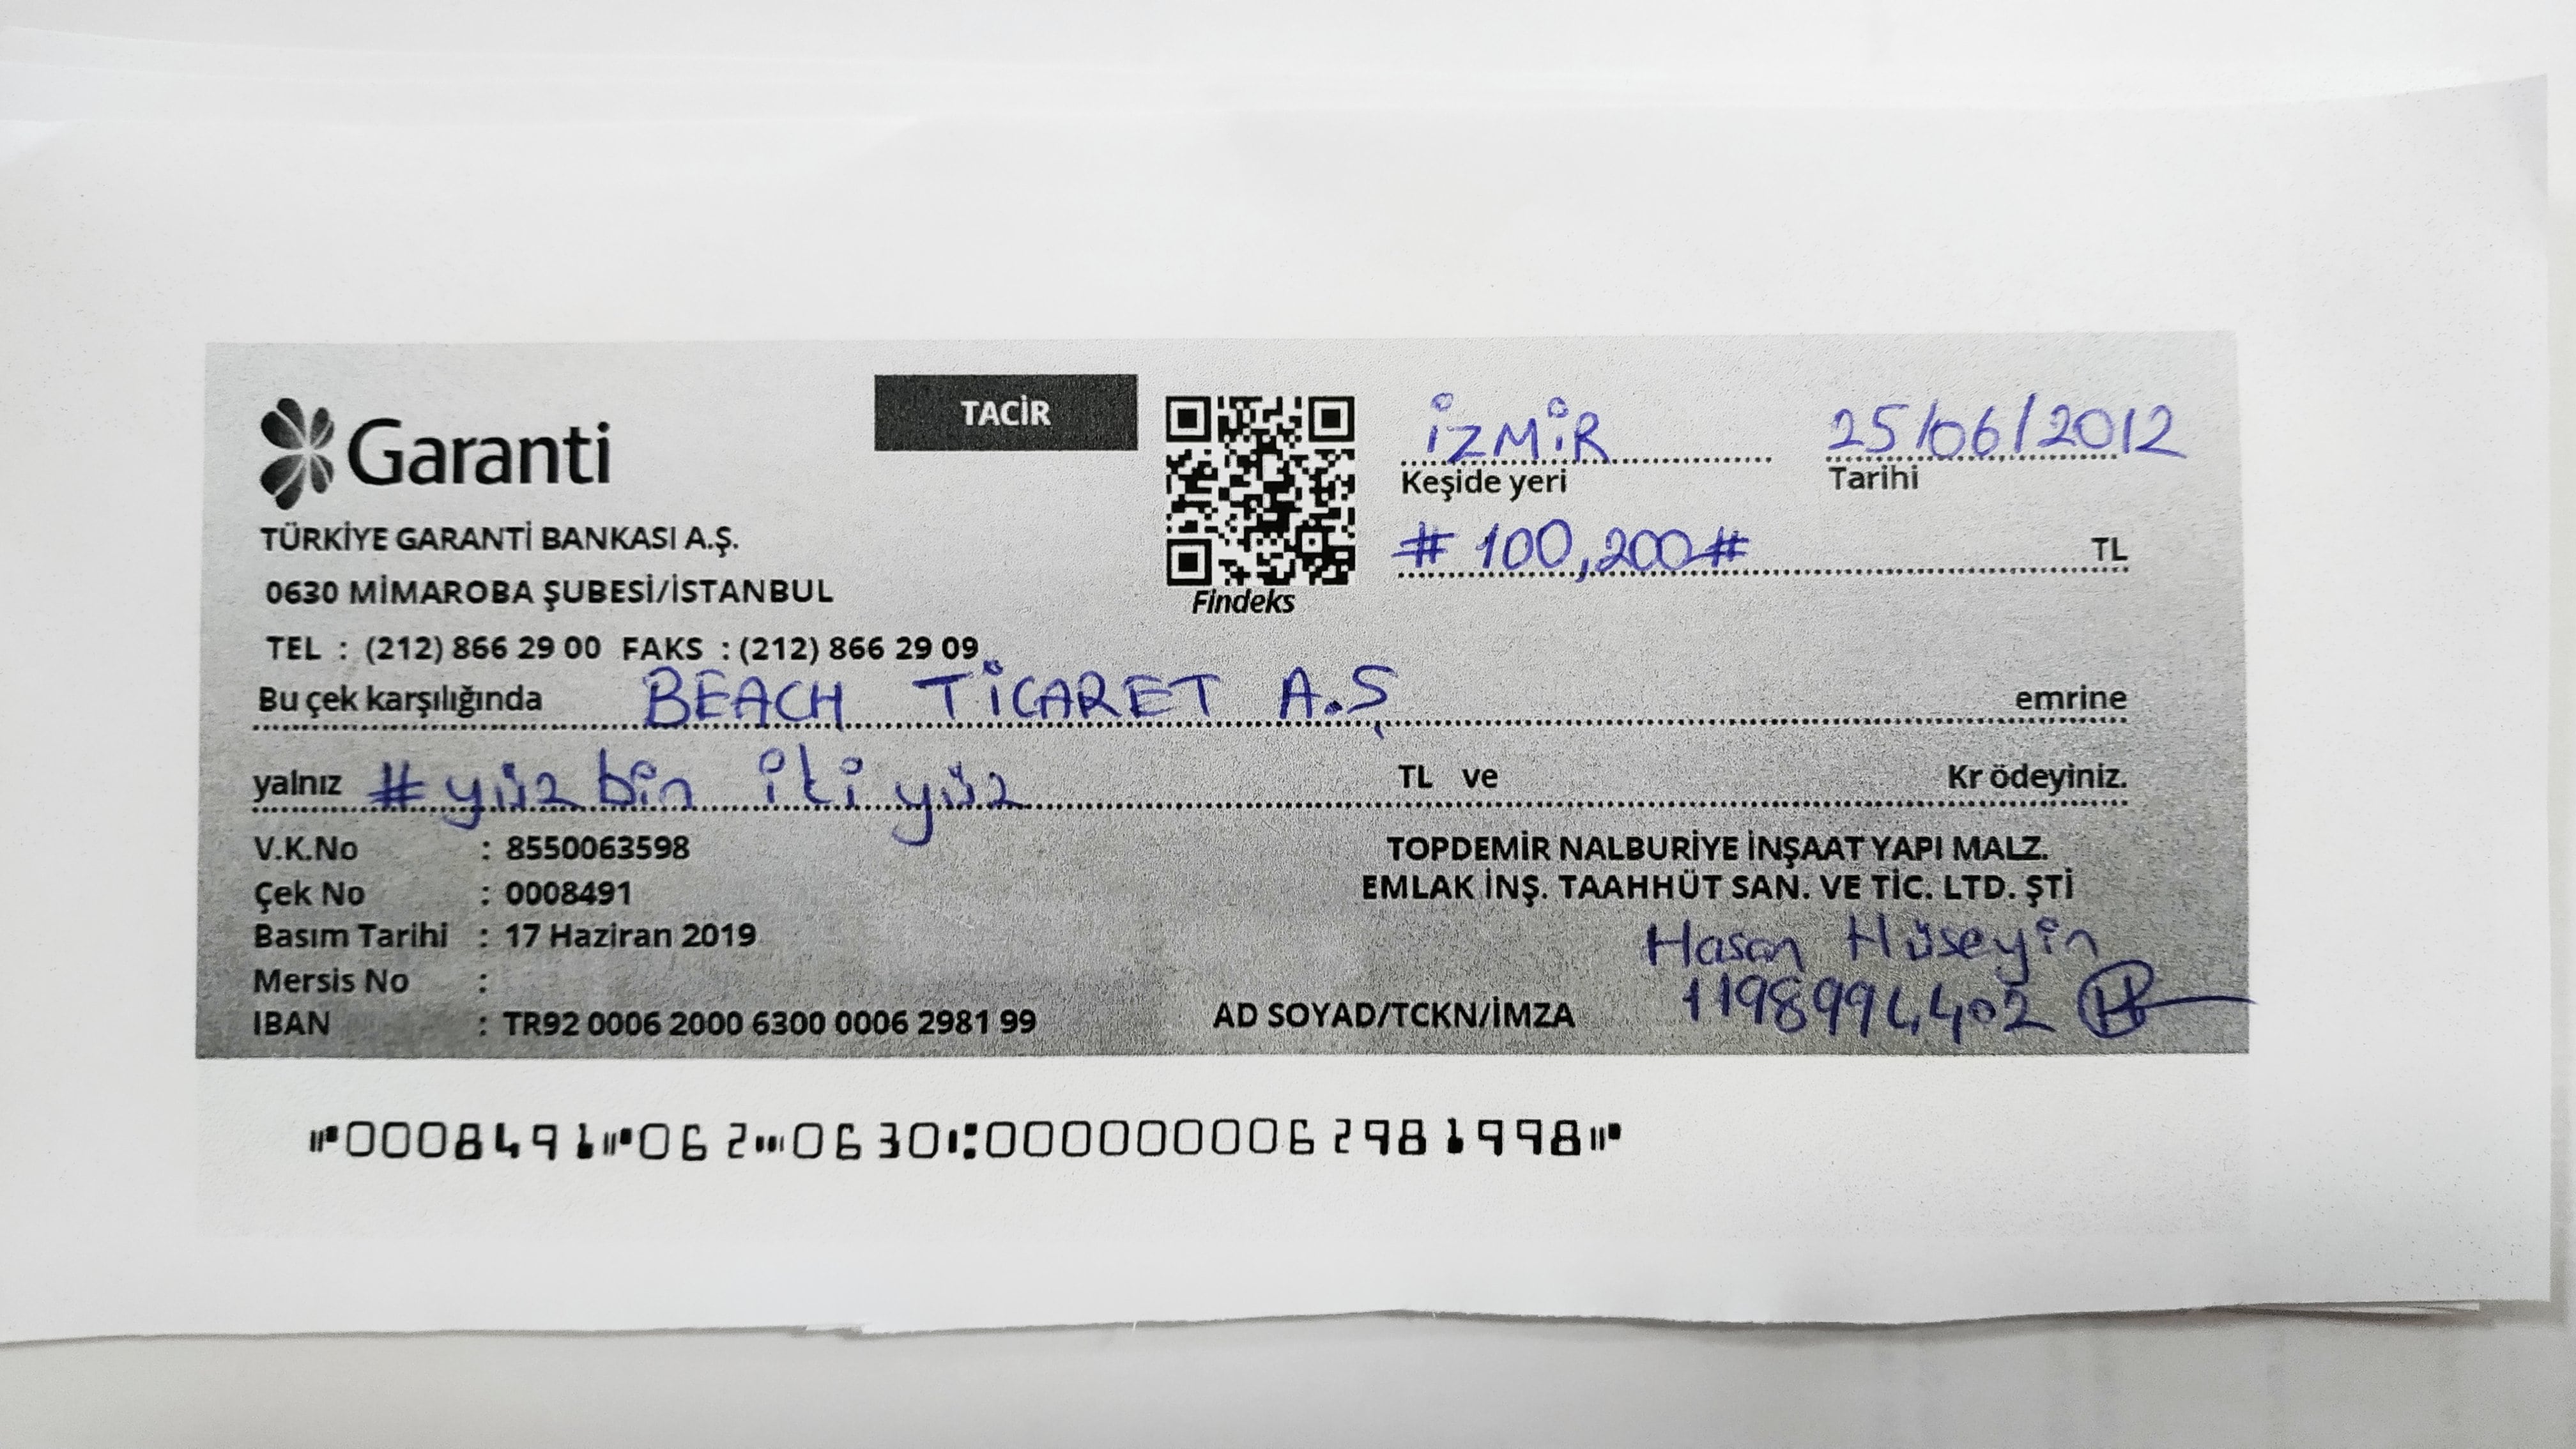 Garanti
TACİR
TÜRKİYE GARANTİ BANKASI A.Ş.
0630 MİMAROBA ŞUBESİ/İSTANBUL
TEL : (212) 866 29 00 FAKS : (212) 866 29 09
Findeks
İZMİR 25/06/2012
Keşide yeri Tarihi
# 100,200# TL
Bu çek karşılığında BEACH TİCARET A.Ş emrine
yalnız #yüz bin iki yüz TL ve Kr ödeyiniz.
V.K.No : 8550063598
Çek No : 0008491
Basım Tarihi : 17 Haziran 2019
Mersis No :
IBAN : TR92 0006 2000 6300 0006 2981 99
TOPDEMİR NALBURİYE İNŞAAT YAPI MALZ.
EMLAK İNŞ. TAAHHÜT SAN. VE TİC. LTD. ŞTİ
Hasan Hüseyin
AD SOYAD/TCKN/İMZA
⑈0008491⑈062⑉0630⑆0000000062981998⑈